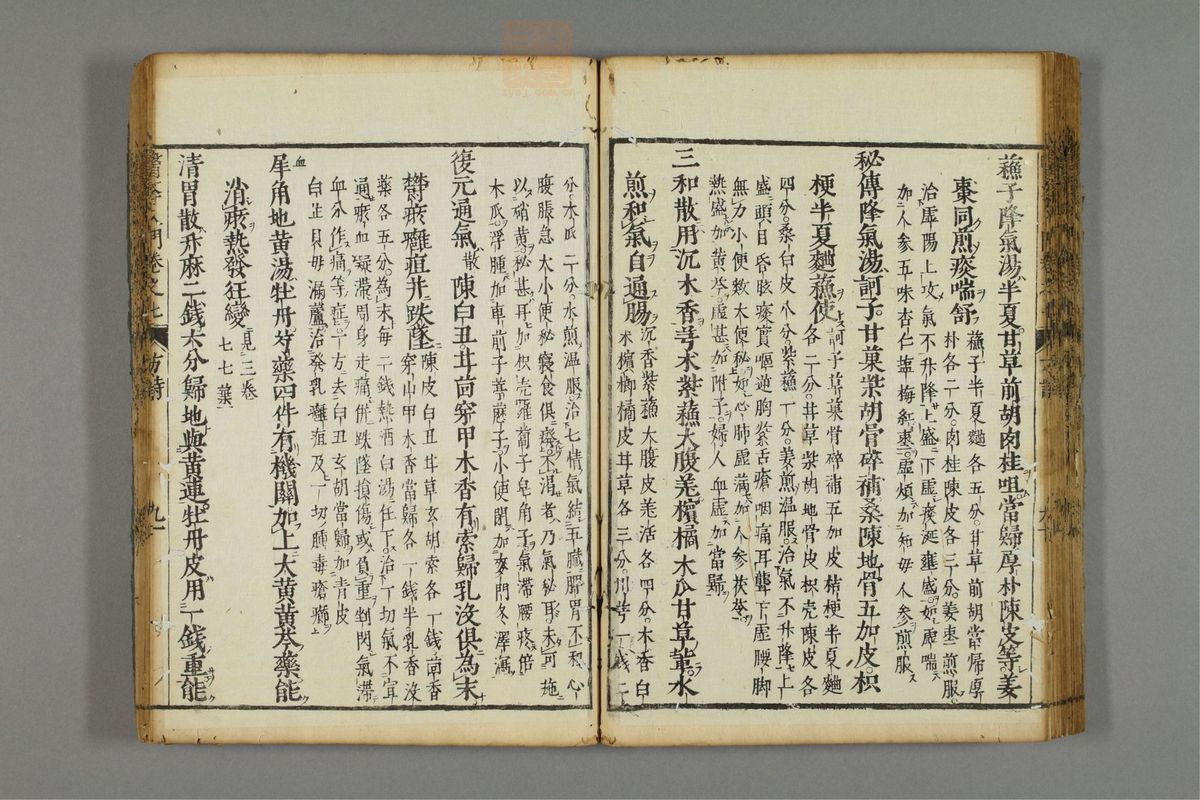 蘓子降氣湯半夏甘草前胡肉桂咀當歸厚朴陳皮等姜
棗同煎痰喘舒
蘓子半夏麯各五分甘草前胡當歸厚
朴各二分肉桂陳皮各三分姜棗煎服
治虛陽上攻氣不升降上盛下虛痰涎壅盛如虛喘
加人参五味杏仁塩梅紅棗虛煩加知母人参煎服
秘傳降氣湯訶子甘菓柴胡骨碎補桑陳地骨五加皮枳
梗半夏麯蘓使
訶子草菓骨碎補五加皮桔梗半夏麯
各二分甘草柴胡地骨皮枳壳陳皮各
四分桑白皮八分紫蘓一分姜煎温服治氣不升降上
盛頭目昏眩痰實嘔逆胸紧舌瘡咽痛耳聾下虛腰脚
無力小便数大便秘如心肺虛滿加人参茯苓
熱盛加黄芩虛甚加附子婦人血虛加當歸
三和散用沉木香芎术紫蘓大腹羌檳橘木瓜甘草葷水
煎和氣自通腸
沉香紫蘓大腹皮羌活各四分木香白
术檳榔橘皮甘草各三分川芎一錢二
分木瓜二分水煎温服治七情氣結五臓脾胃不和心
腹脹急大小便秘寝食俱癈不渴者乃氣秘耳未可施
以硝黄秘甚耳加枳壳羅葡子皂角子氣滯腰疼倍
木瓜浮腫加車前子葶藶子小便閉加麥門冬澤瀉
復元通氣散陳白丑甘茴穿甲木香有索歸乳没俱為末
欝疼癰疽并跌墜
陳皮白丑甘草玄胡索各一錢茴香
穿山甲木香當歸各一錢半乳香没
藥各五分為末每二錢熱酒白湯任下治一切氣不宣
通疼血凝滯周身走痛併跌墜損傷或負重剉閃氣滯
血分作痛等症一方去白丑玄胡當歸加青皮
白芷貝母漏蘆治發乳癰疽及一切腫毒瘡癤
犀角地黄湯牡丹芍藥四件有機關加上大黄黄芩藥能
消疼熱發狂變
見三卷
七七葉
清胃散升麻二錢六分歸地與黄連牡丹皮用一錢重能